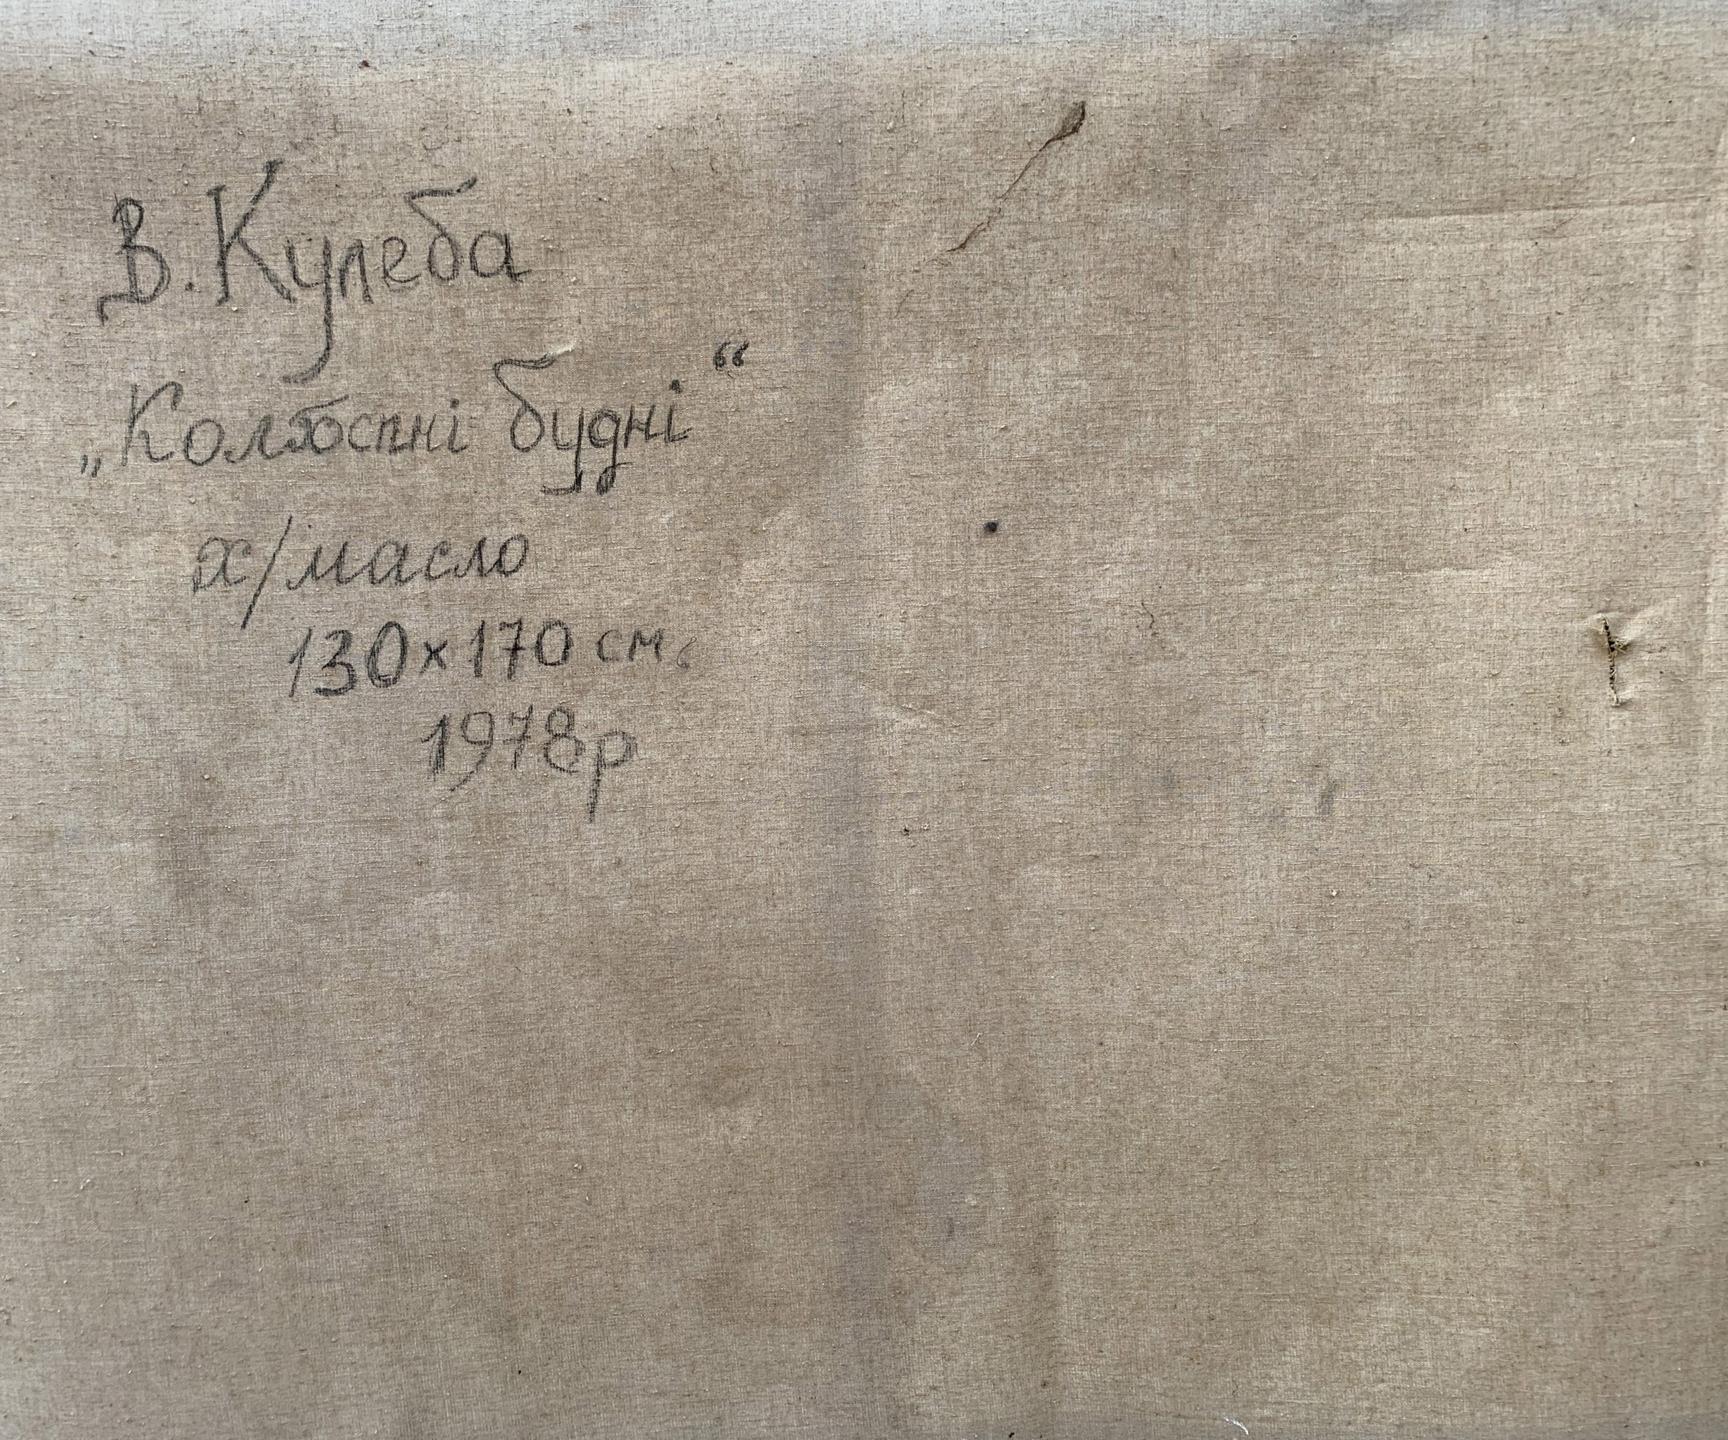 В. Кулеба
„Колгоспні будні“
х/масло
130х170 см.
1978р